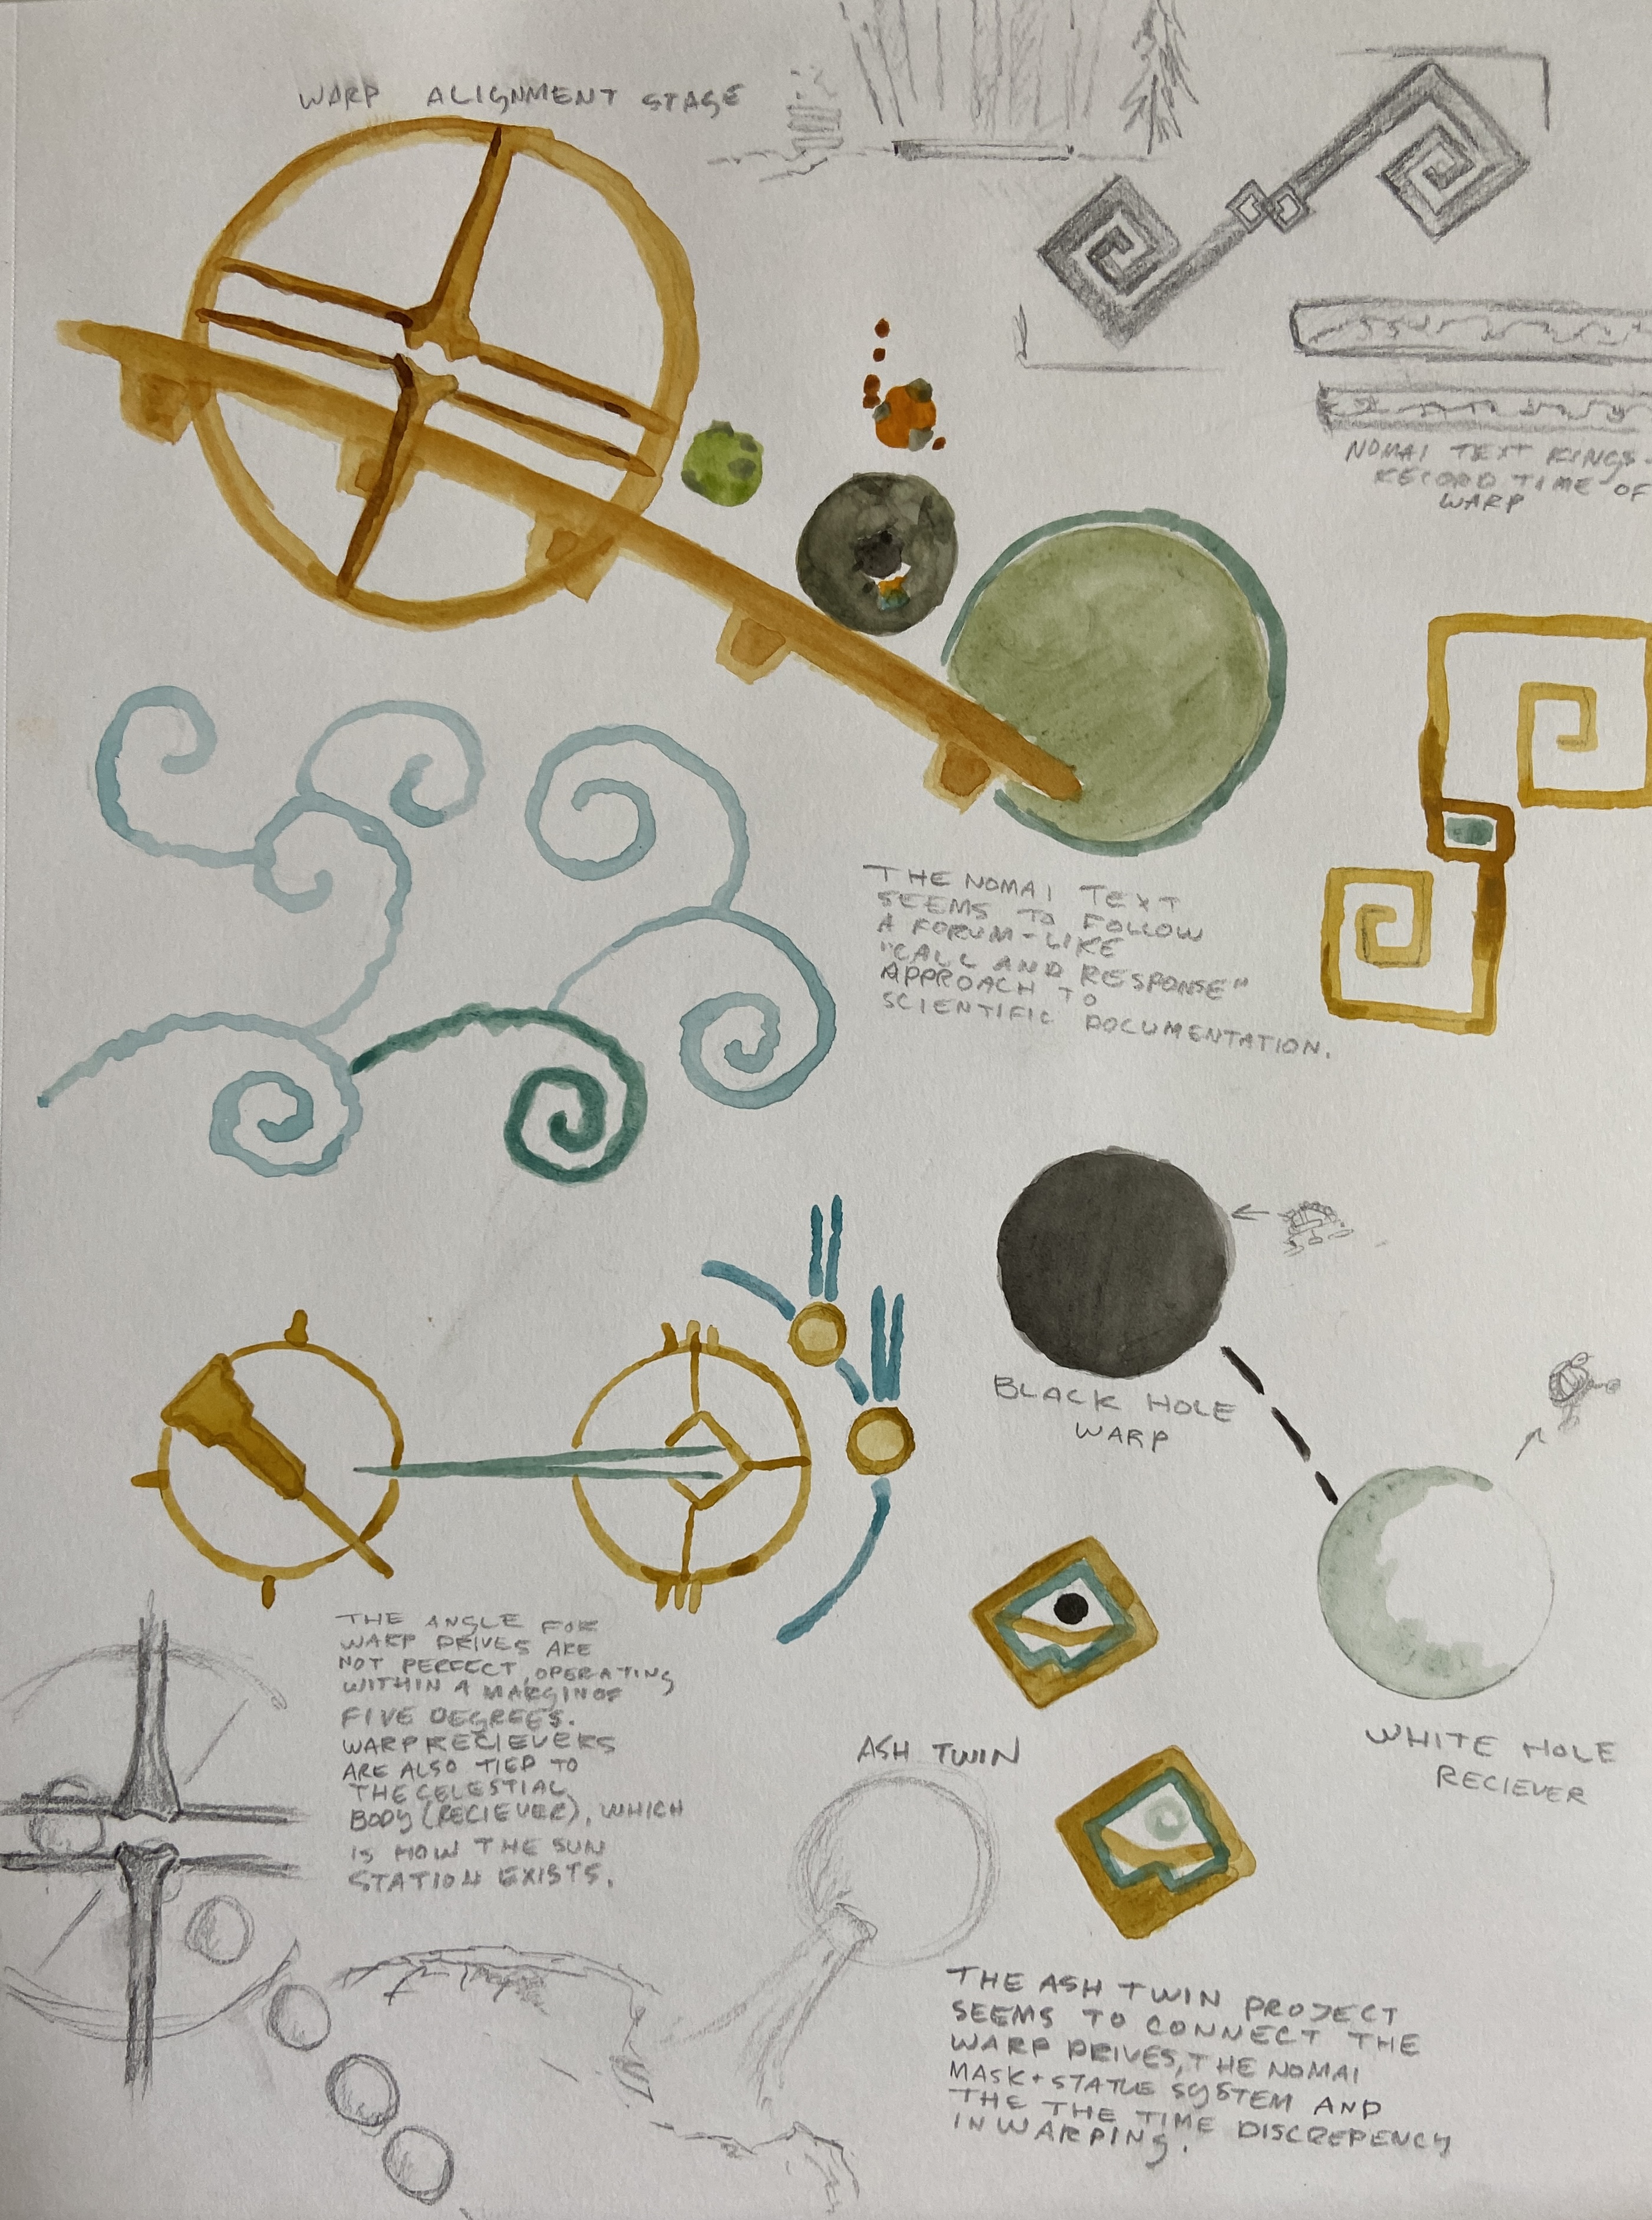 WARP ALIGNMENT STAGE
NOMAI TEXT RINGS-
RECORD TIME OF
WARP
THE NOMAI TEXT
SEEMS TO FOLLOW
A FORUM-LIKE
"CALL AND RESPONSE"
APPROACH TO
SCIENTIFIC DOCUMENTATION.
BLACK HOLE
WARP
THE ANGLE FOR
WARP DRIVES ARE
NOT PERFECT, OPERATING
WITHIN A MARGIN OF
FIVE DEGREES.
WARP RECIEVERS
ARE ALSO TIED TO
THE CELESTIAL
BODY (RECIEVER), WHICH
IS HOW THE SUN
STATION EXISTS.
WHITE HOLE
RECIEVER
ASH TWIN
THE ASH TWIN PROJECT
SEEMS TO CONNECT THE
WARP DRIVES, THE NOMAI
MASK + STATUE SYSTEM AND
THE THE TIME DISCREPENCY
IN WARPING.